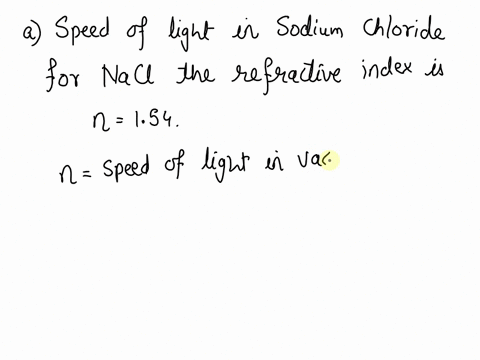 a) Speed of light in Sodium Chloride
for NaCl the refractive index is
n = 1.54.
n = Speed of light in vac